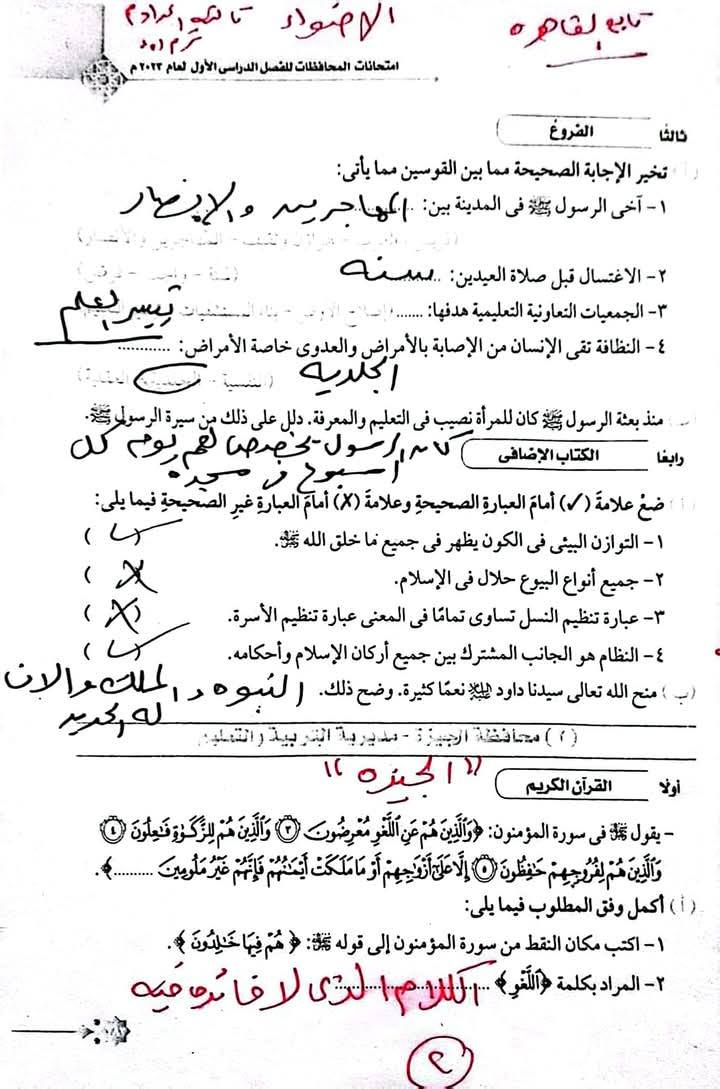 تابع القاهره
الاضواء
تالته اعدادى
ترم اول
امتحانات المحافظات للفصل الدراسى الأول لعام ٢٠٢٣ م
ثالثا الفروع
( أ ) تخير الإجابة الصحيحة مما بين القوسين مما يأتى:
١- آخى الرسول ﷺ فى المدينة بين: ......... المهاجرين والانصار
٢- الاغتسال قبل صلاة العيدين: ...... سنه
٣- الجمعيات التعاونية التعليمية هدفها: ....... تيسير العلم
٤- النظافة تقى الإنسان من الإصابة بالأمراض والعدوى خاصة الأمراض: ............
الجلديه
(ب) منذ بعثة الرسول ﷺ كان للمرأة نصيب فى التعليم والمعرفة. دلل على ذلك من سيرة الرسول ﷺ.
كان الرسول يخصص لهم يوم كل
اسبوع فى مسجده
رابعا الكتاب الإضافى
( أ ) ضعْ علامةَ (✓) أمامَ العبارةِ الصحيحةِ وعلامةَ (✗) أمامَ العبارةِ غيرِ الصحيحةِ فيما يلى:
١- التوازن البيئى فى الكون يظهر فى جميع ما خلق الله ﷺ. (✓)
٢- جميع أنواع البيوع حلال فى الإسلام. (✗)
٣- عبارة تنظيم النسل تساوى تمامًا فى المعنى عبارة تنظيم الأسرة. (✗)
٤- النظام هو الجانب المشترك بين جميع أركان الإسلام وأحكامه. (✓)
(ب) منح الله تعالى سيدنا داود عليه السلام نعمًا كثيرة. وضح ذلك. النبوه والملك والان
له الحديد
(٢) محافظة الجيزة - مديرية التربية والتعليم
"الجيزه"
أولا القرآن الكريم
- يقول ﷻ فى سورة المؤمنون: ﴿وَٱلَّذِينَ هُمْ عَنِ ٱللَّغْوِ مُعْرِضُونَ ٣ وَٱلَّذِينَ هُمْ لِلزَّكَوٰةِ فَٰعِلُونَ ٤
وَٱلَّذِينَ هُمْ لِفُرُوجِهِمْ حَٰفِظُونَ ٥ إِلَّا عَلَىٰٓ أَزْوَٰجِهِمْ أَوْ مَا مَلَكَتْ أَيْمَٰنُهُمْ فَإِنَّهُمْ غَيْرُ مَلُومِينَ ..........﴾.
( أ ) أكمل وفق المطلوب فيما يلى:
١- اكتب مكان النقط من سورة المؤمنون إلى قوله ﷻ: ﴿هُمْ فِيهَا خَٰلِدُونَ﴾.
٢- المراد بكلمة ﴿ٱللَّغْوِ﴾ .......... الكلام الذى لا فائده فيه
٢